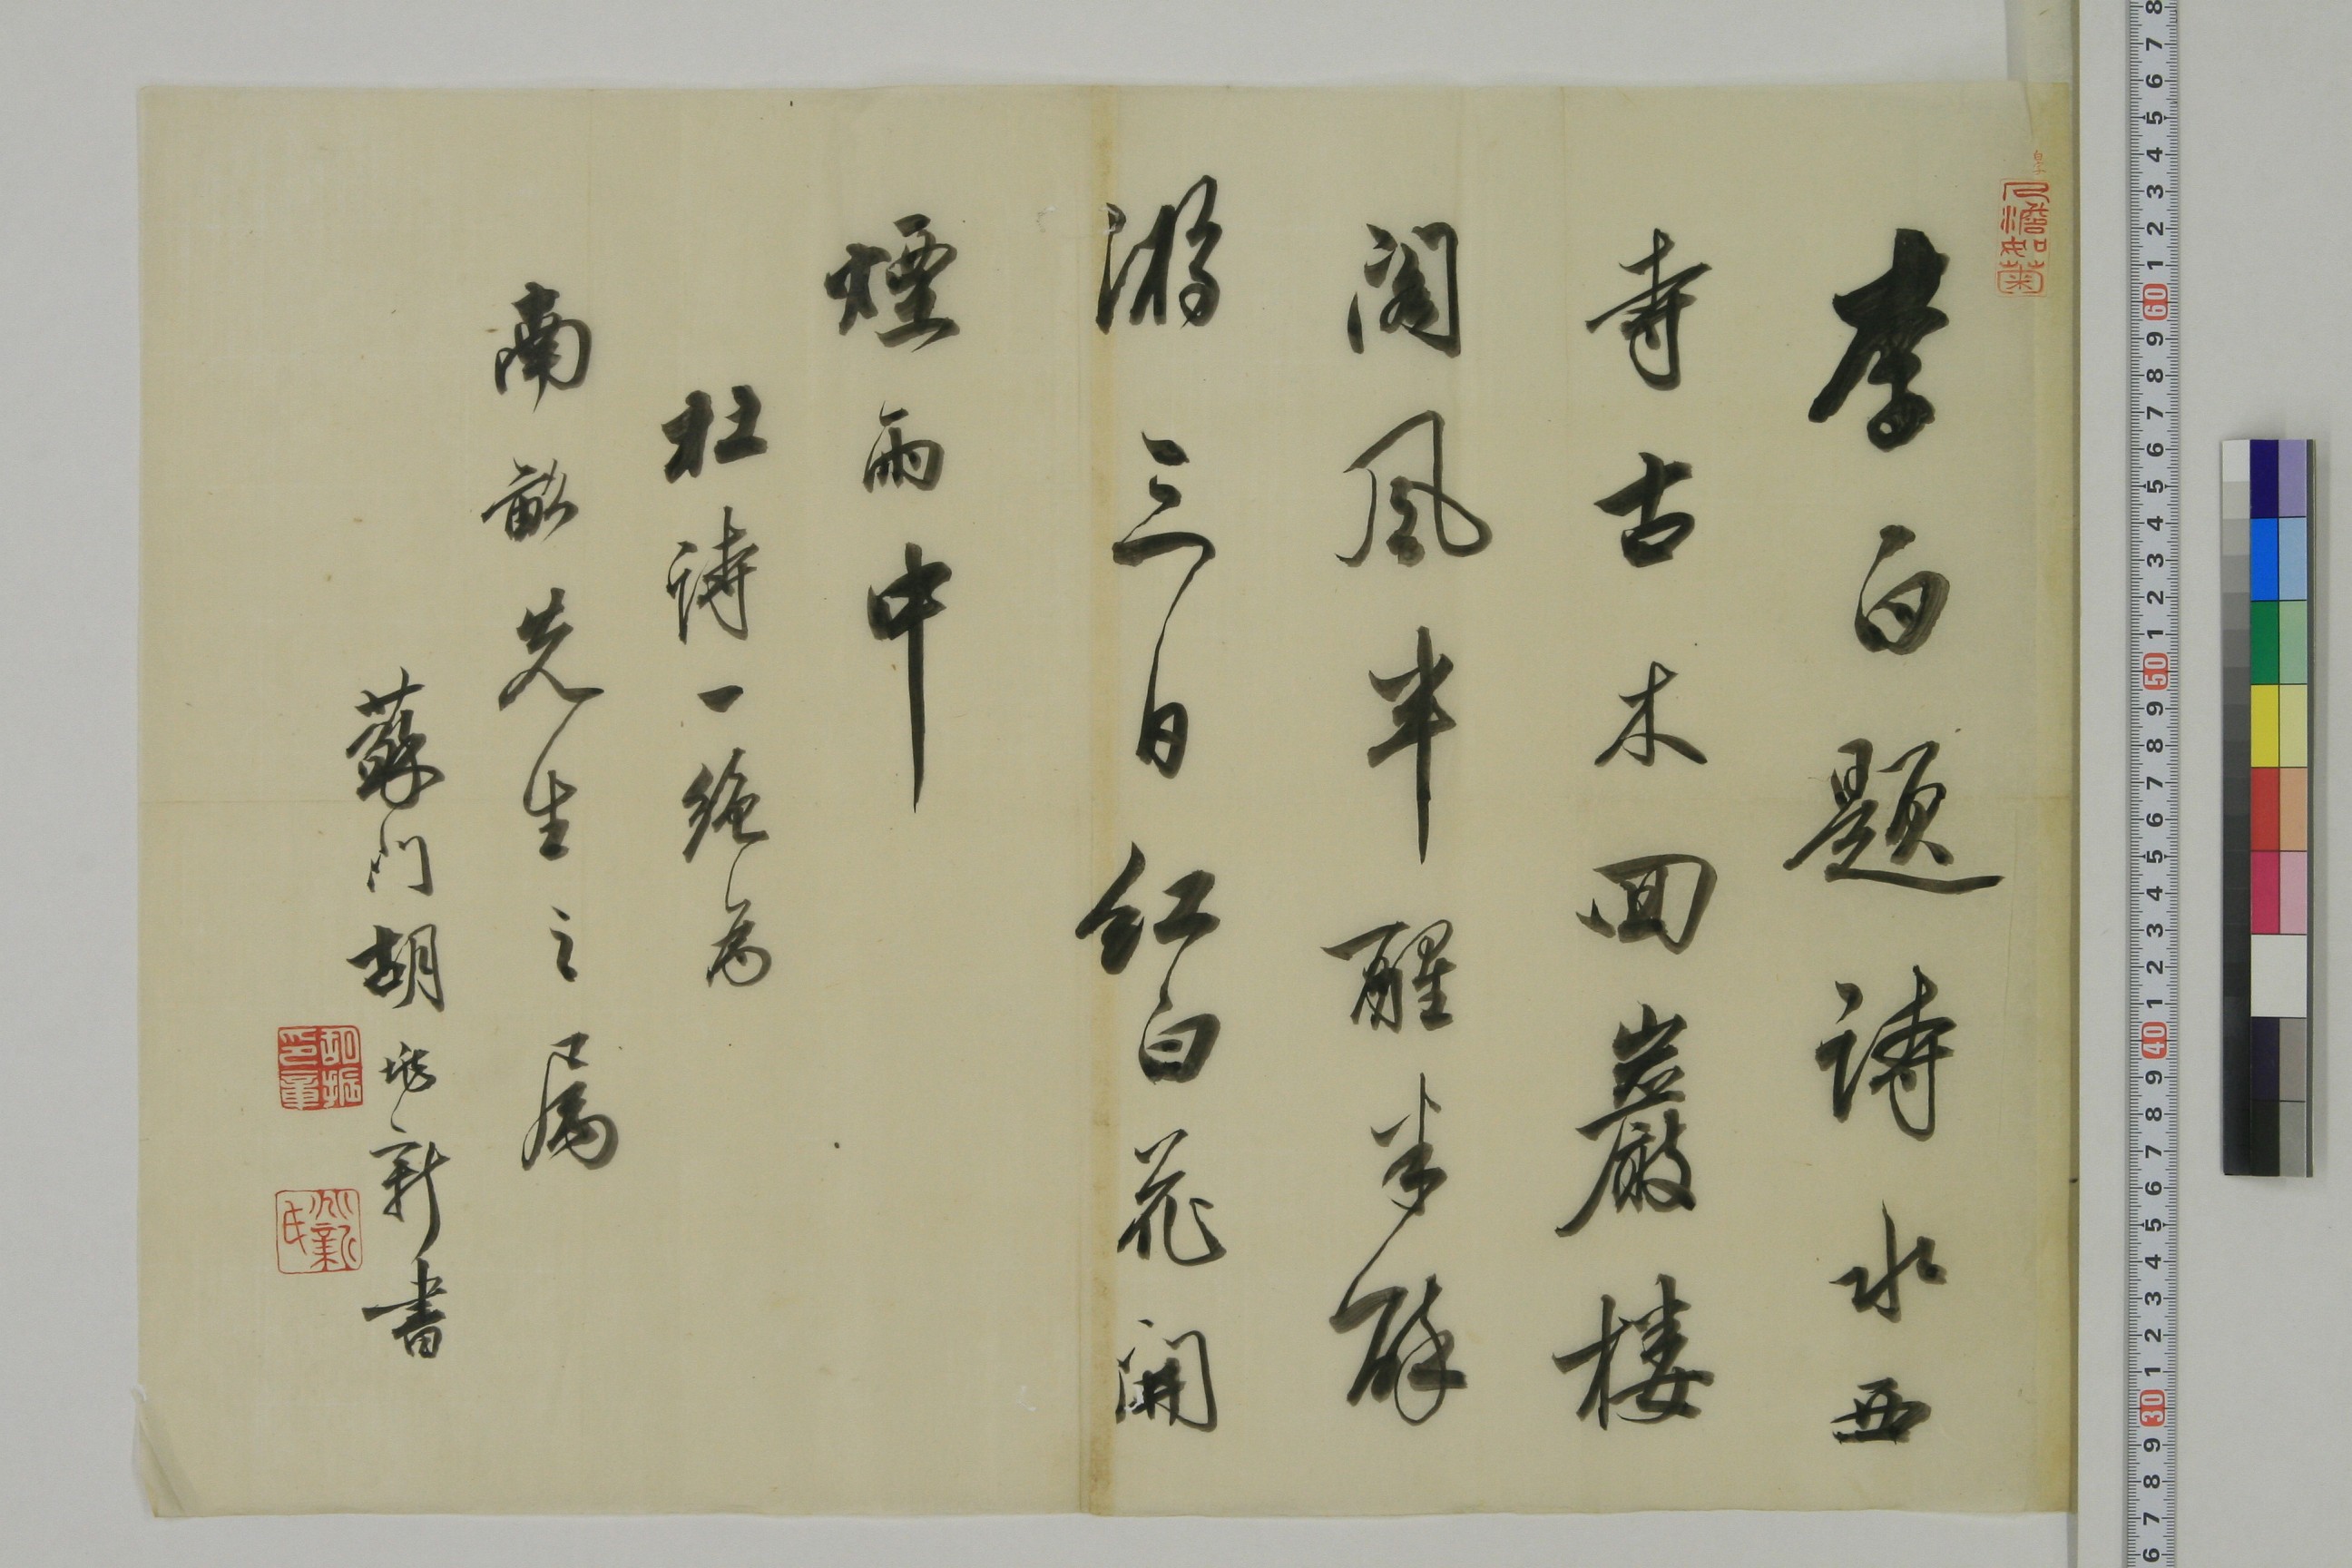 李白題詩水西
寺古木回巖樓
閣風半醒半醉
游三日紅白花開
煙雨中
杜詩一絶為
南畝先生之屬
蘇門胡兆新書
兆新氏